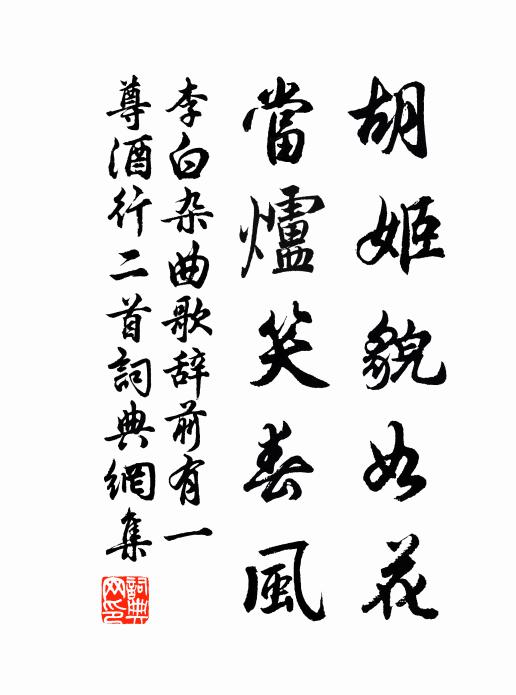 胡姬貌如花
當爐笑春風
李白杂曲歌辞前有一
尊酒行二首詞典網集